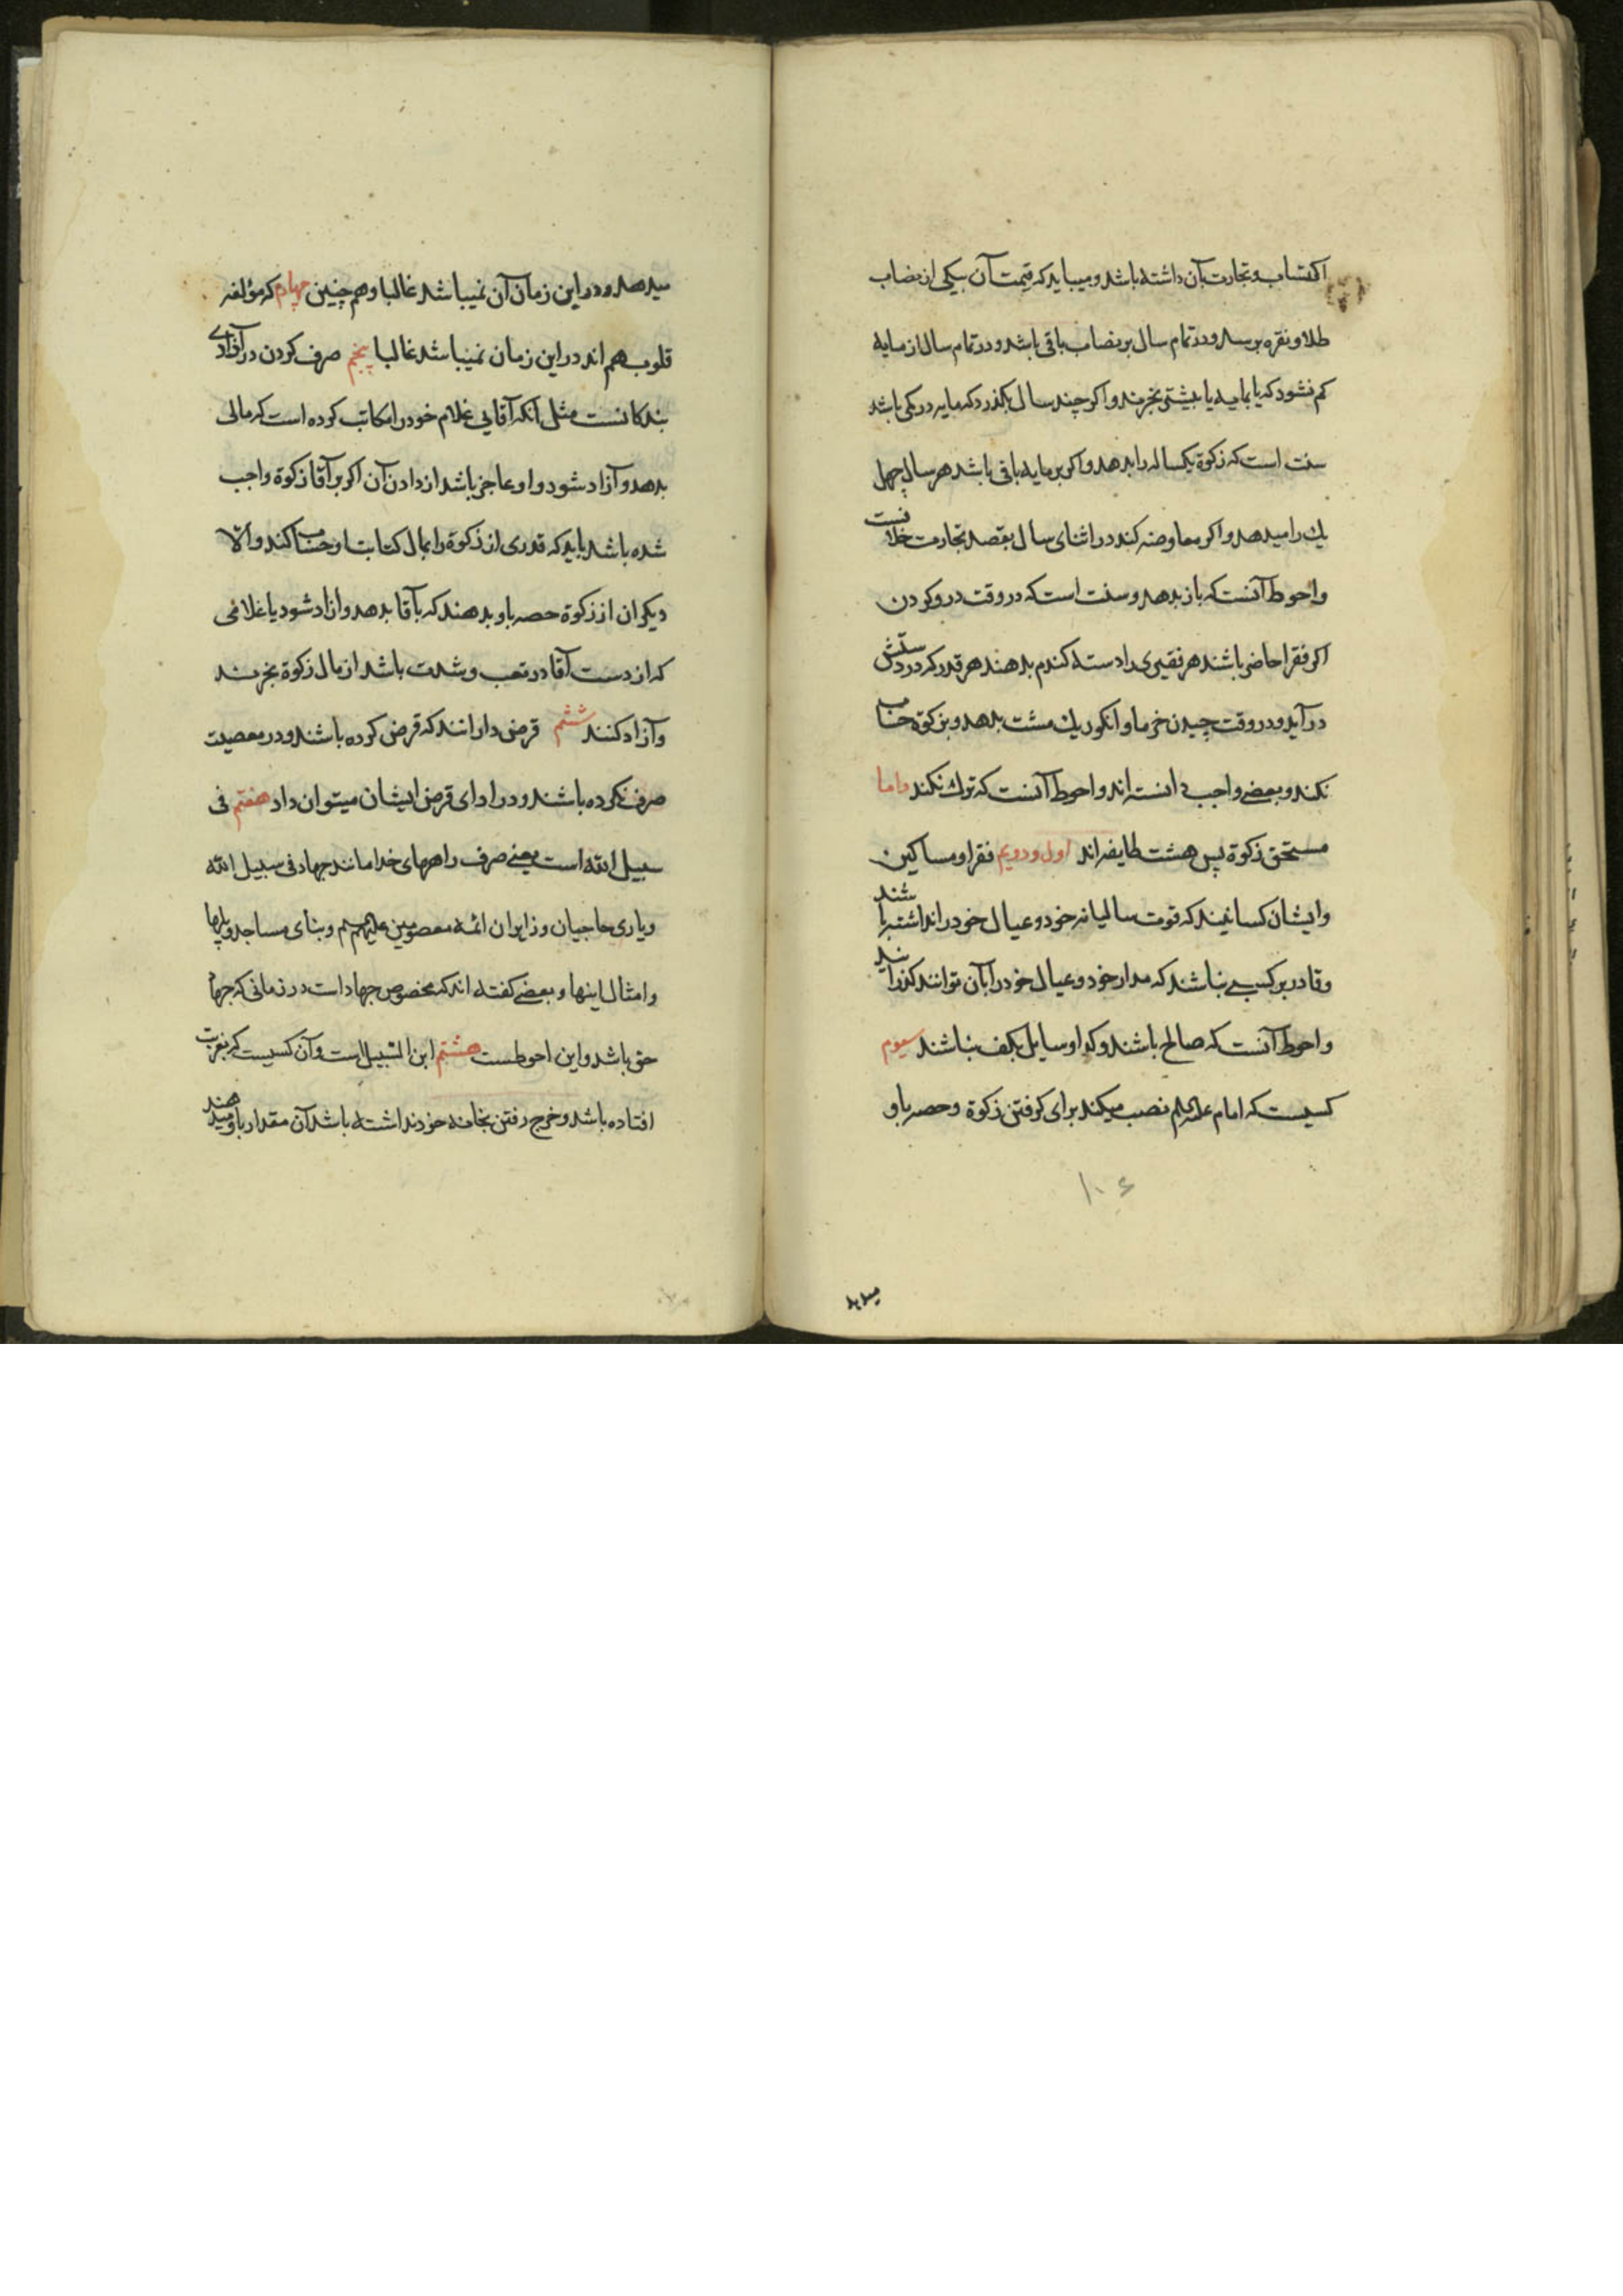 اکتساب و تجارت بآن داشته باشد و میباید که قیمت آن بیکی از نصاب
طلا و نقره برسد و در تمام سال بر نصاب باقی باشد و در تمام سال از مایه
کم نشود که یا بمایه یا بیشتر بخرند و اکر چند سال بکذرد که مایه در کمی باشد
سنت است که زکوة یکساله را بدهد و اکر بر مایه باقی باشد هر سال چهل
یك را میدهد و اکر معاوضه کند در اثنای سال بقصد تجارت خلافست
و احوط آنست که باز بدهد و سنت است که در وقت درو کردن
اکر فقرا حاضر باشند هر فقیری را دسته کندم بدهند هر قدر که در دستش
در آید و در وقت چیدن خرما و انکور یك مشت بدهد و بزکوة حساب
نکند و بعضی واجب دانسته اند و احوط آنست که ترك نکند و اما
مستحق زکوة پس هشت طایفه اند اول و دویم فقرا و مساکین
و ایشان کسانیند که قوت سالیانه خود و عیال خود را نداشته باشند
و قادر بر کسبی نباشند که مدار خود و عیال خود را بآن توانند کذرانید
و احوط آنست که صالح باشند و کدا و سایل بکف نباشند سیوم
کسیست که امام علیه السلم نصب میکند برای کرفتن زکوة و حصه باو
۱۰۶
میدهد
میدهد و در این زمان آن نمیباشد غالبا و هم چنین چهارم که مؤلفه
قلوبهم اند در این زمان نمیباشد غالبا پنجم صرف کردن در آزادی
بندکانست مثل آنکه آقایی غلام خود را مکاتب کرده است که مالی
بدهد و آزاد شود و او عاجز باشد از دادن آن اکر بر آقا زکوة واجب
شده باشد باید که قدری از زکوة را بمال کتابت او حساب کند و الا
دیکران از زکوة حصه باو بدهند که بآقا بدهد و ازاد شود یا غلامی
که از دست آقا در تعب و شدت باشد از مال زکوة بخرند
و آزاد کنند ششم قرض دارانند که قرض کرده باشند و در معصیت
صرف نکرده باشند و در ادای قرض ایشان میتوان داد هفتم فی
سبیل الله است یعنی صرف راههای خدا مانند جهاد فی سبیل الله
و یاری حاجیان و زایران ائمه معصومین علیهم السلم و بنای مساجد و پلها
و امثال اینها و بعضی کفته اند که مخصوص جهاد است در زمانی که جهاد
حق باشد و این احوطست هشتم ابن السبیل است و آن کسیست که بغربت
افتاده باشد و خرج رفتن بخانه خود نداشته باشد آن مقدار باو میدهند